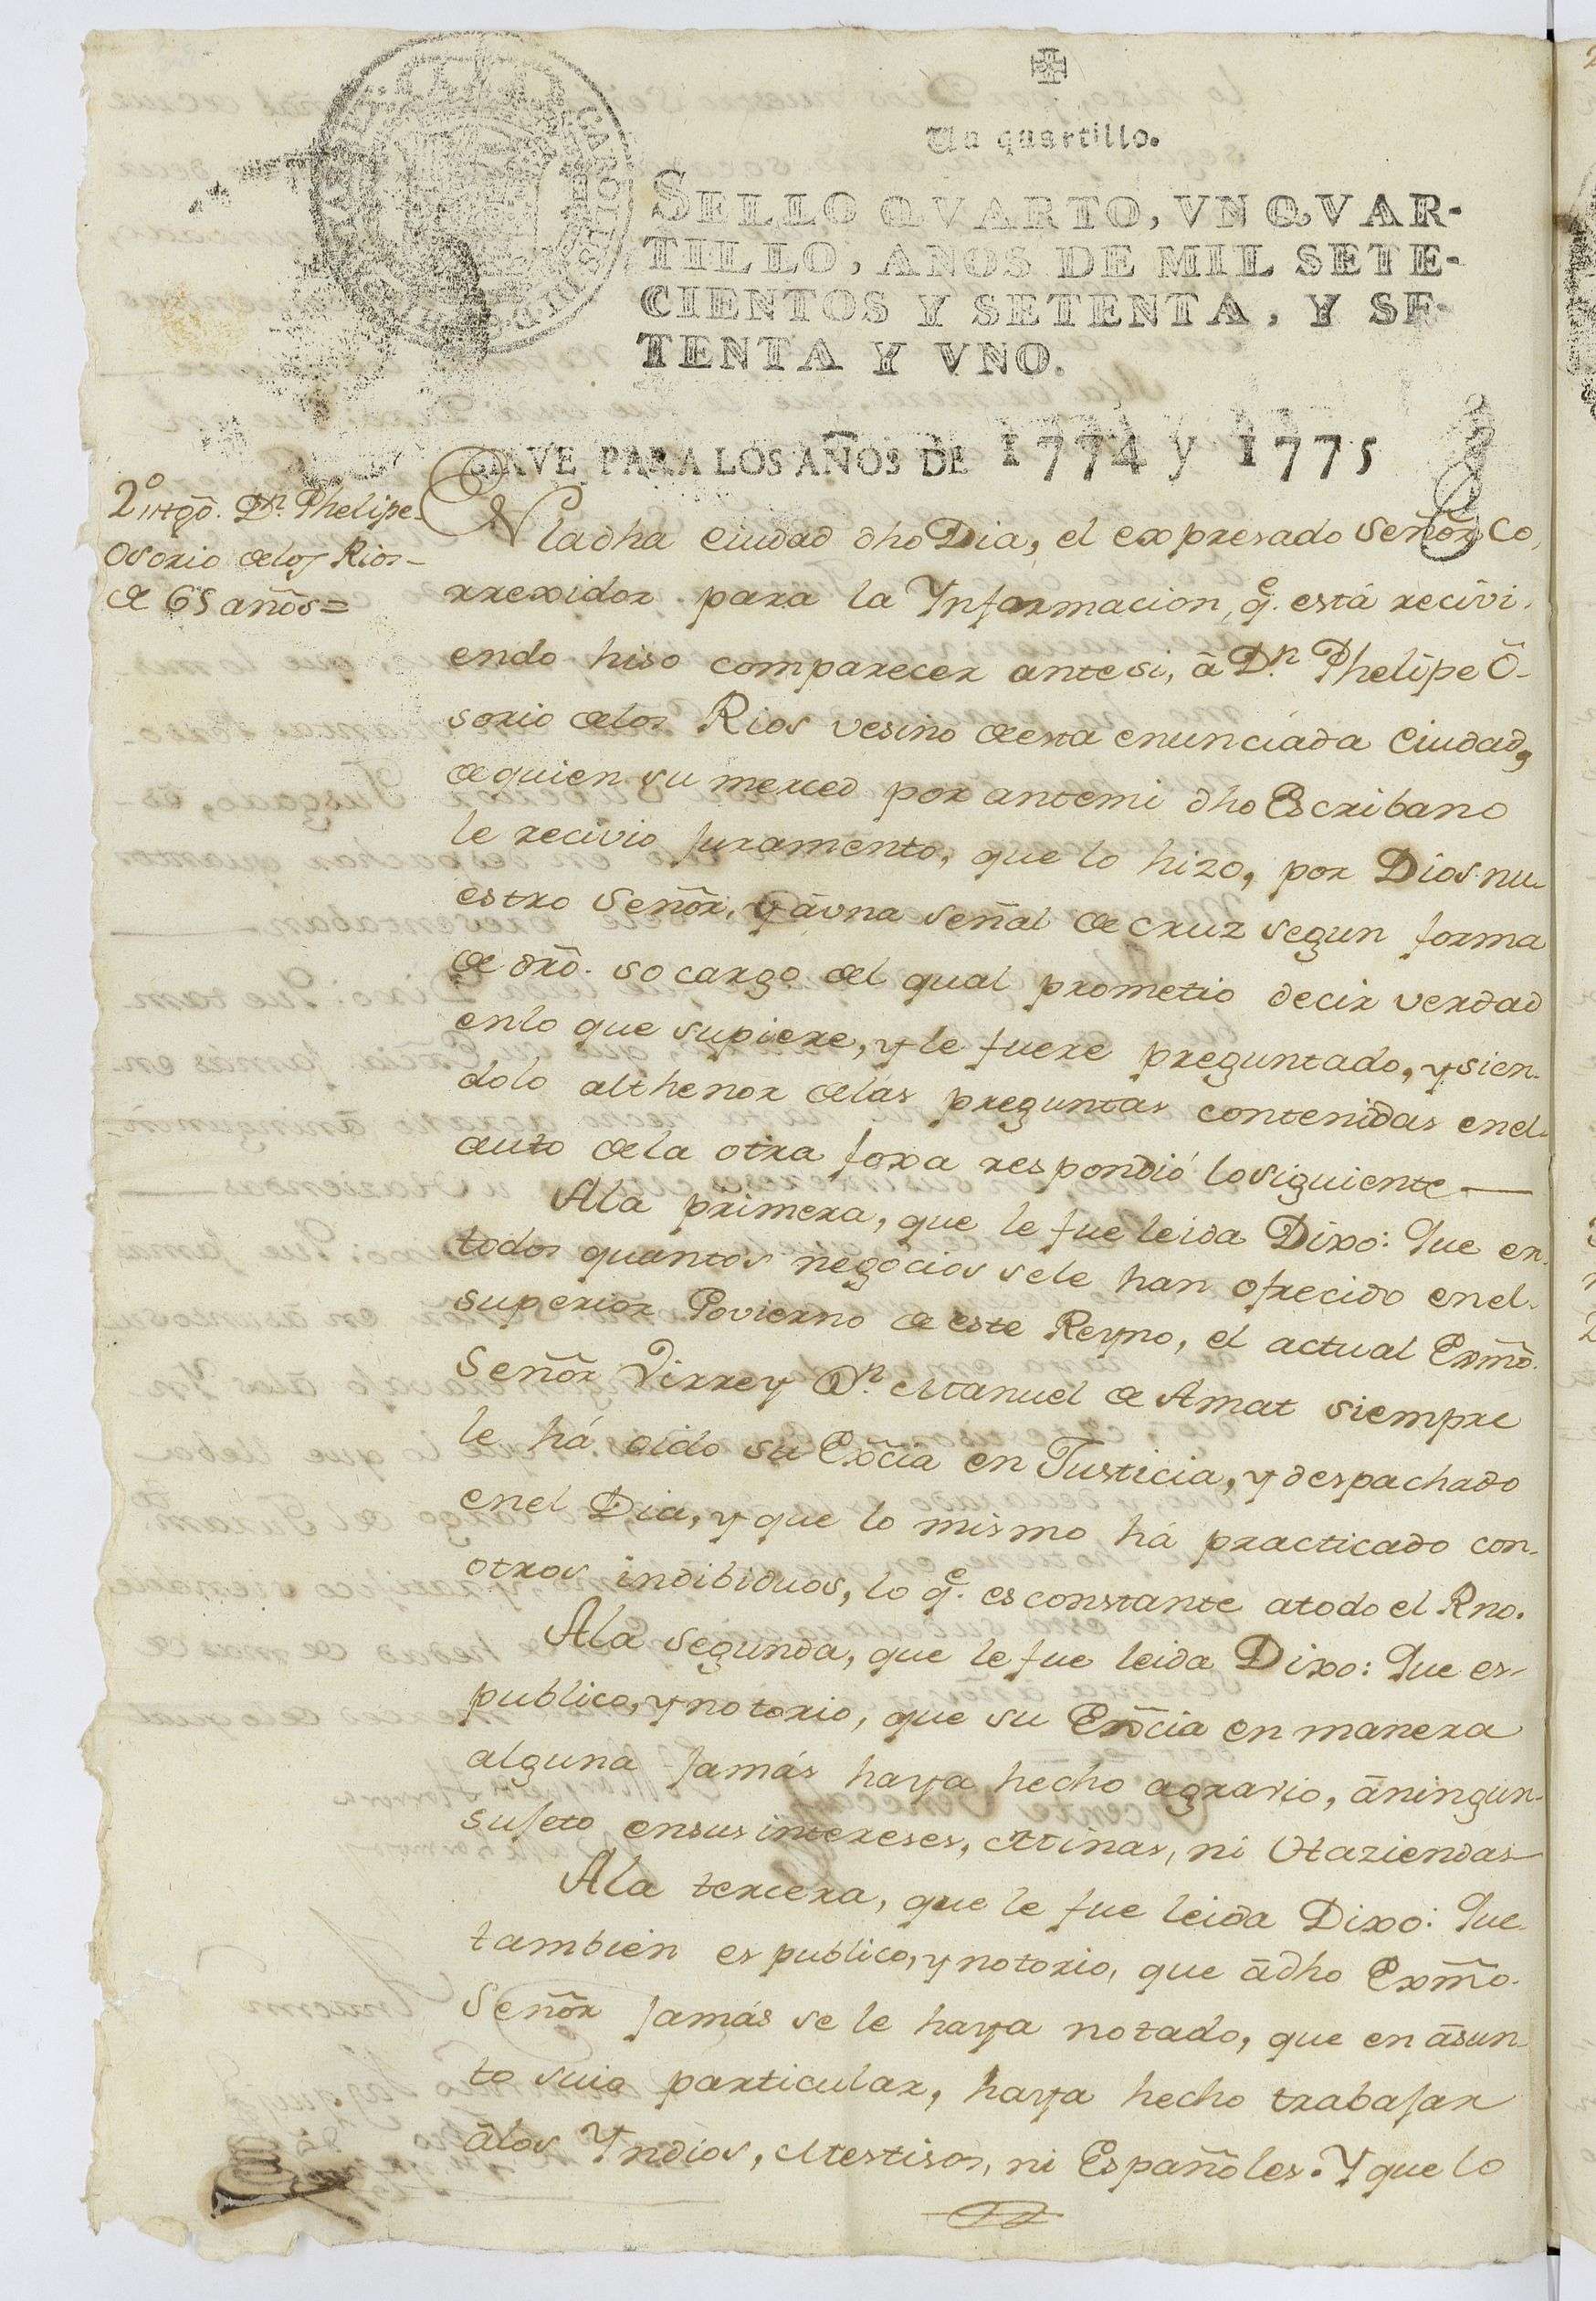 Un quartillo.
SELLO QVARTO, VN QVAR-
TILLO, AÑOS DE MIL SETE-
CIENTOS Y SETENTA, Y SE-
TENTA Y VNO.
SIRVE PARA LOS AÑOS DE 1774 y 1775
2º ttgõ. Dn. Phelipe
Osorio delos Rios
de 65 años=
EN la dha Ciudad dho Dia, el expresado Señor Co,
rrexidor para la Ynformacion, qe. está recivi,
endo hiso comparecer antesi, â Dn. Phelipe O-
sorio delos Rios vesino de esta enunciada Ciudad,
de quien su merced por antemi dho Escribano
le recivio Juramento, que lo hizo, por Dios nu-
estro Señor, y âuna señal de Cruz segun forma
de drõ. so cargo del qual prometio decir verdad
enlo que supiere, y le fuere preguntado, y sien-
dolo althenor delas preguntas contenidas enel
auto dela otra foxa respondió lo siguiente—
Ala primera, que le fue leida Dixo: Que en
todos quantos negocios sele han ofrecido enel
superior Govierno de este Reyno, el actual Exmõ.
Señor Virrey Dn. Manuel de Amat siempre
le há oido su Exc̃ia en Justicia, y despachado
enel Dia, y que lo mismo há practicado con
otros indibiduos, lo qe. es constante atodo el Rno.
Ala segunda, que le fue leida Dixo: Que es
publico, y notorio, que su Exc̃ia en manera
alguna Jamás haya hecho agravio, âningun
sujeto ensus intereses, Minas, ni Haziendas—
Ala tercera, que le fue leida Dixo: Que
tambien es publico, y notorio, que âdho Exmõ.
Señor Jamás se le haya notado, que en âsun-
to suio particular, haya hecho trabajar
âlos Yndios, Mestisos, ni Españoles. Y que lo